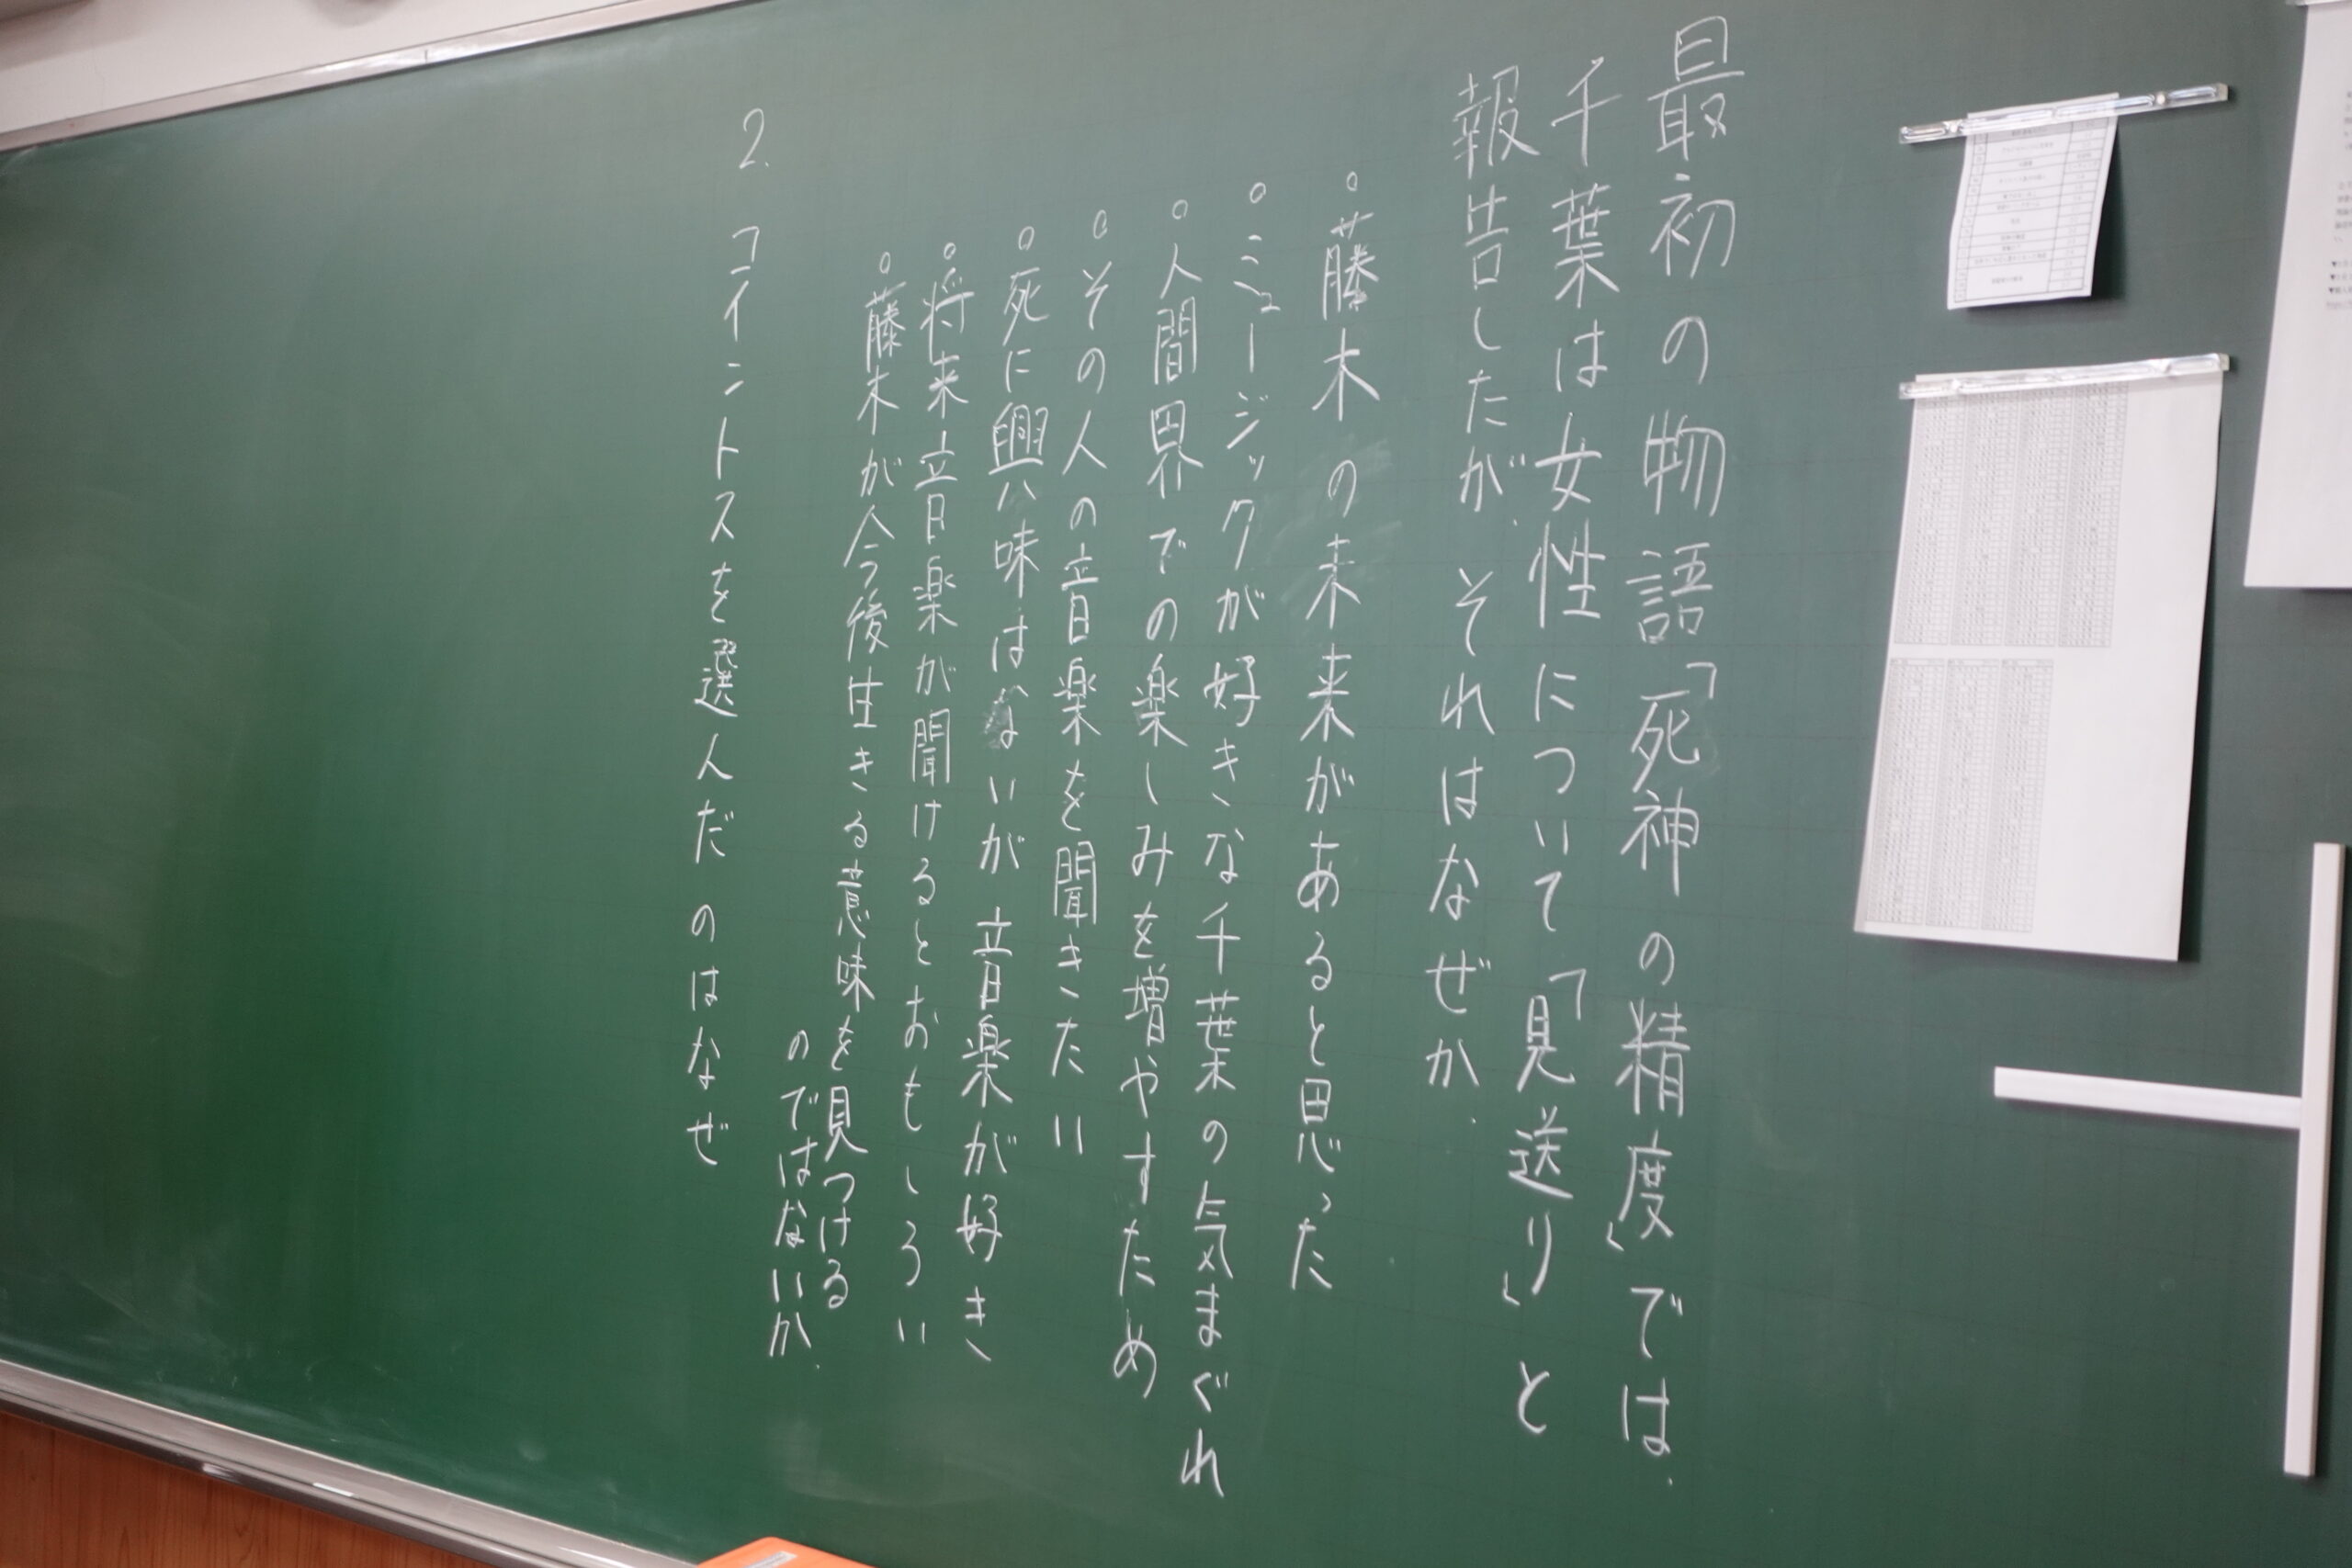 最初の物語「死神の精度」では、
千葉は女性について「見送り」と
報告したが、それはなぜか。
○藤木の未来があると思った
○ミュージックが好きな千葉の気まぐれ
○人間界での楽しみを増やすため
○その人の音楽を聞きたい
○死に興味はないが音楽が好き
○将来音楽が聞けるとおもしろい
○藤木が今後生きる意味を見つける
のではないか。
2. コイントスを選んだのはなぜ